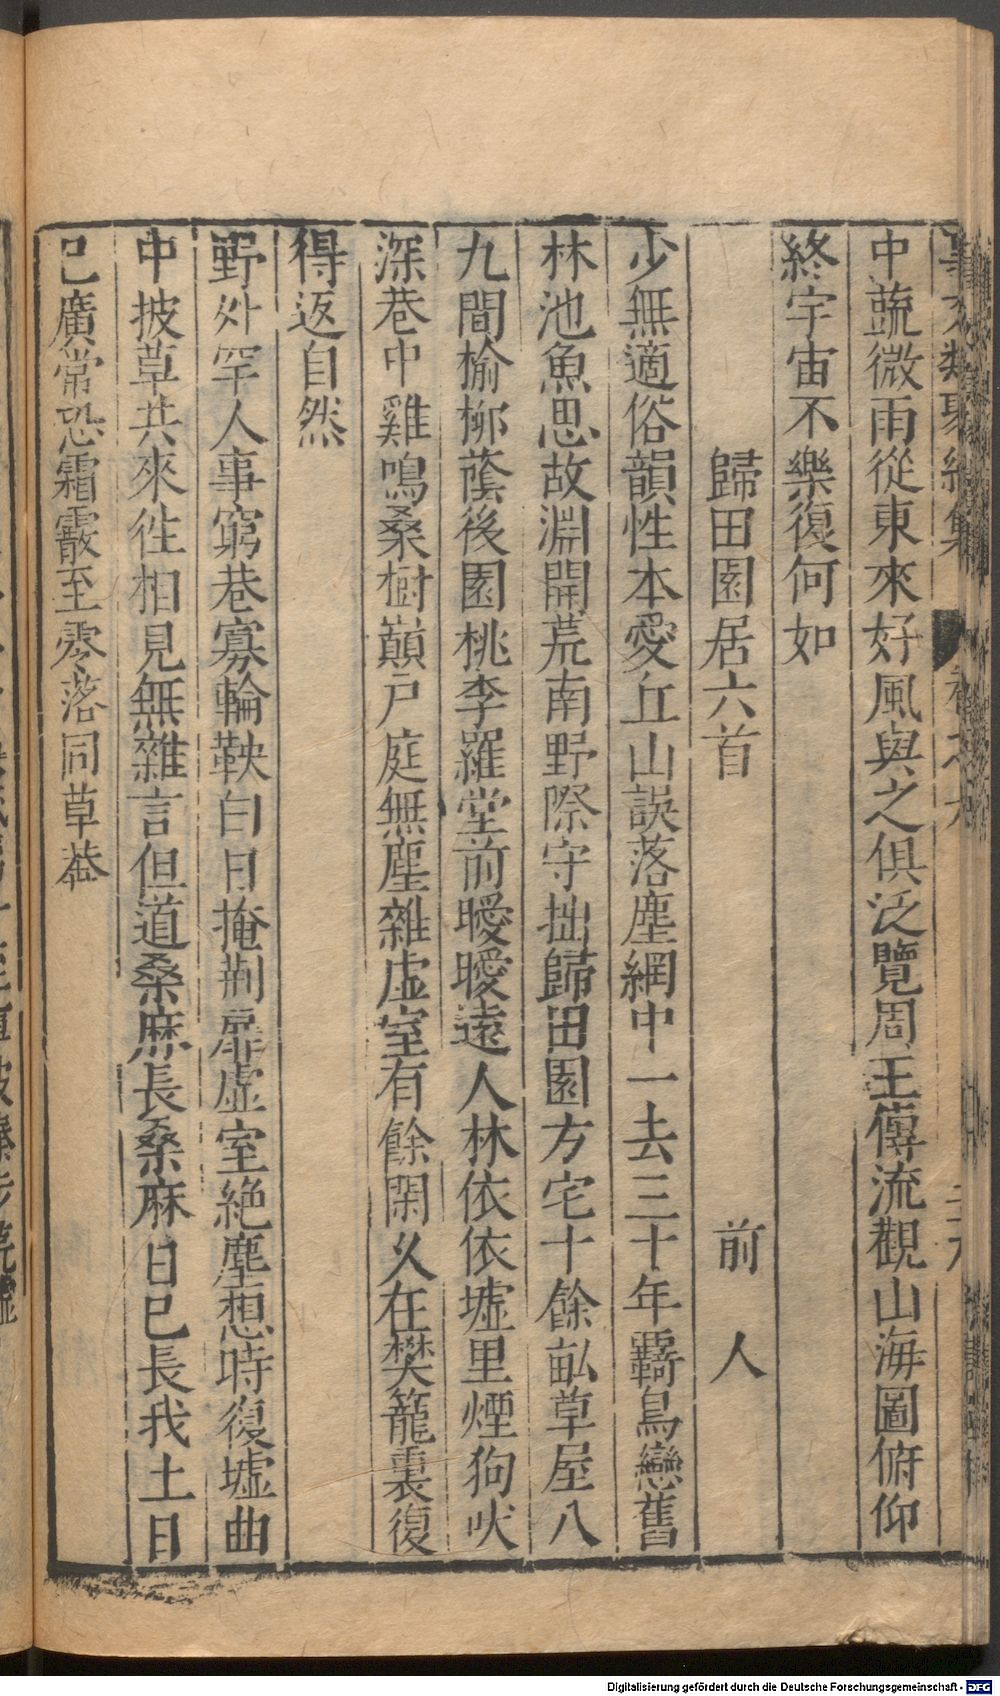 事文類聚續集 卷之六
中蔬微雨從東來好風與之俱泛覽周王傳流觀山海圖俯仰
終宇宙不樂復何如
歸田園居六首 前人
少無適俗韻性本愛丘山誤落塵網中一去三十年羇鳥戀舊
林池魚思故淵開荒南野際守拙歸田園方宅十餘畝草屋八
九間榆栁蔭後園桃李羅堂前曖曖遠人林依依墟里煙狗吠
深巷中雞鳴桑樹巔戸庭無塵雜虚室有餘閑久在樊籠裏復
得返自然
野外罕人事窮巷寡輪鞅白日掩荆扉虚室絶塵想時復墟曲
中披草共來徃相見無雜言但道桑麻長桑麻日已長我土日
已廣常恐霜霰至零落同草莽
Digitalisierung gefördert durch die Deutsche Forschungsgemeinschaft - DFG